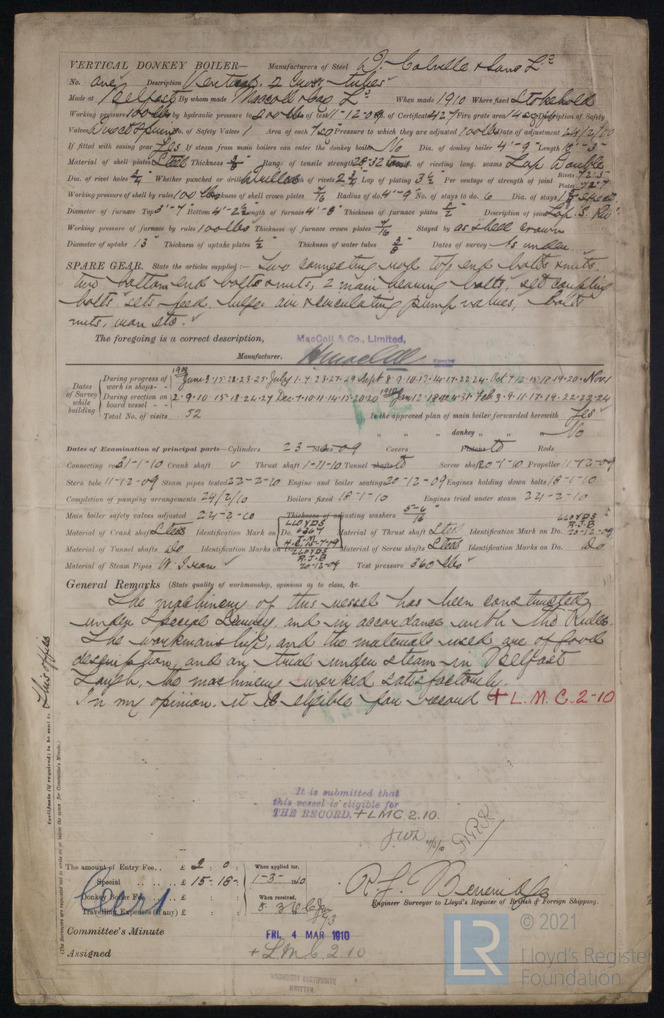 VERTICAL DONKEY BOILER— Manufacturers of Steel D. Colville & Sons Ld
No. One Description Vertical 2 Cross tubes
Made at Belfast By whom made MacColl & Co Ld When made 1910 Where fixed Stokehold
Working pressure 100 lbs by hydraulic pressure to 200 lbs of test 11-12-09 of Certificate 427 Fire grate area Description of Safety
Valves Direct Spring of Safety Valves 1 Area of each Pressure to which they are adjusted 100 lbs Date of adjustment 24/2/10
If fitted with easing gear Yes If steam from main boilers can enter the donkey boiler No Dia. of donkey boiler 4'-9" Length
Material of shell plates Steel Thickness Range of tensile strength 28-32 tons of riveting long. seams Lap Double
Dia. of rivet holes Whether punched or drilled Drilled of rivets Lap of plating Per centage of strength of joint Rivets 72.3 Plates 72.7
Working pressure of shell by rules 100 lbs Thickness of shell crown plates 7/16 Radius of do. 4'-9" No. of stays to do. 6 Dia. of stays
Diameter of furnace Top 3'-7" Bottom Length of furnace 4'-8" Thickness of furnace plates Description of joint Lap S. Riv
Working pressure of furnace by rules 100 lbs Thickness of furnace crown plates 7/16 Stayed by as shell crown
Diameter of uptake 13" Thickness of uptake plates Thickness of water tubes 3/8 Dates of survey As under
SPARE GEAR. State the articles supplied:— Two connecting rod top end bolts & nuts,
two bottom ends bolts & nuts, 2 main bearing bolts, set coupling
bolts, sets feed, bilge, air & circulating pump valves, bolts
nuts, iron etc.
The foregoing is a correct description,
MacColl & Co., Limited,
Manufacturer. H MacColl
Dates of Survey while building
During progress of work in shops - - 1909 June 3·15·23·23·25 July 1·7·23·27·29 Sept 8·9·10·13·14·17·22·24 Oct 7·12·15·18·19·20 Nov 1
During erection on board vessel - - - 2·9·10·15·18·24·27 Dec 7·10·11·14·15·20 1910 Jan Feb 3·9·11·17·19·22·23·24
Total No. of visits 52
Is the approved plan of main boiler forwarded herewith Yes
" " " donkey " " " No
Dates of Examination of principal parts—Cylinders 23-09 Slides Covers Pistons Do Rods
Connecting rods 21-1-10 Crank shaft Thrust shaft 1-11-10 Tunnel shafts Do Screw shaft 20-1-10 Propeller 11-12-09
Stern tube 11-12-09 Steam pipes tested 22-2-10 Engine and boiler seatings 20-12-09 Engines holding down bolts 18-1-10
Completion of pumping arrangements 24/2/10 Boilers fixed 18-1-10 Engines tried under steam 24-2-10
Main boiler safety valves adjusted 24-2-10 Thickness of adjusting washers
Material of Crank shaft Steel Identification Mark on Do. LLOYDS Material of Thrust shaft Steel Identification Mark on Do. LLOYDS R.J.B 20-12-09
Material of Tunnel shafts Do Identification Marks on Do. LLOYDS R.J.B 20-12-09 Material of Screw shafts Steel Identification Marks on Do. Do
Material of Steam Pipes W. Iron Test pressure 360 lbs
General Remarks (State quality of workmanship, opinions as to class, &c.
The machinery of this vessel has been constructed
under Special Survey, and in accordance with the Rules.
The workmanship, and the materials used are of good
description, and on trial under steam in Belfast
Lough, the machinery worked satisfactorily.
In my opinion it is eligible for record + L.M.C. 2-10
Certificate (if required) to be sent to This office
(The Surveyors are requested not to write on or below the space for Committee's Minute.)
It is submitted that
this vessel is eligible for
THE RECORD. + LMC 2.10.
The amount of Entry Fee . . £ 2 : 0 : When applied for,
Special . . . . £ 15 - 18 - 1-3- 1910
Donkey Boiler Fee . . . £ When received,
Travelling Expenses (if any) £
Engineer Surveyor to Lloyd's Register of British & Foreign Shipping.
Committee's Minute FRI. 4 MAR 1910
Assigned + L M C 2 10
MACHINERY CERTIFICATE
WRITTEN
© 2021
LR Lloyd's Register
Foundation